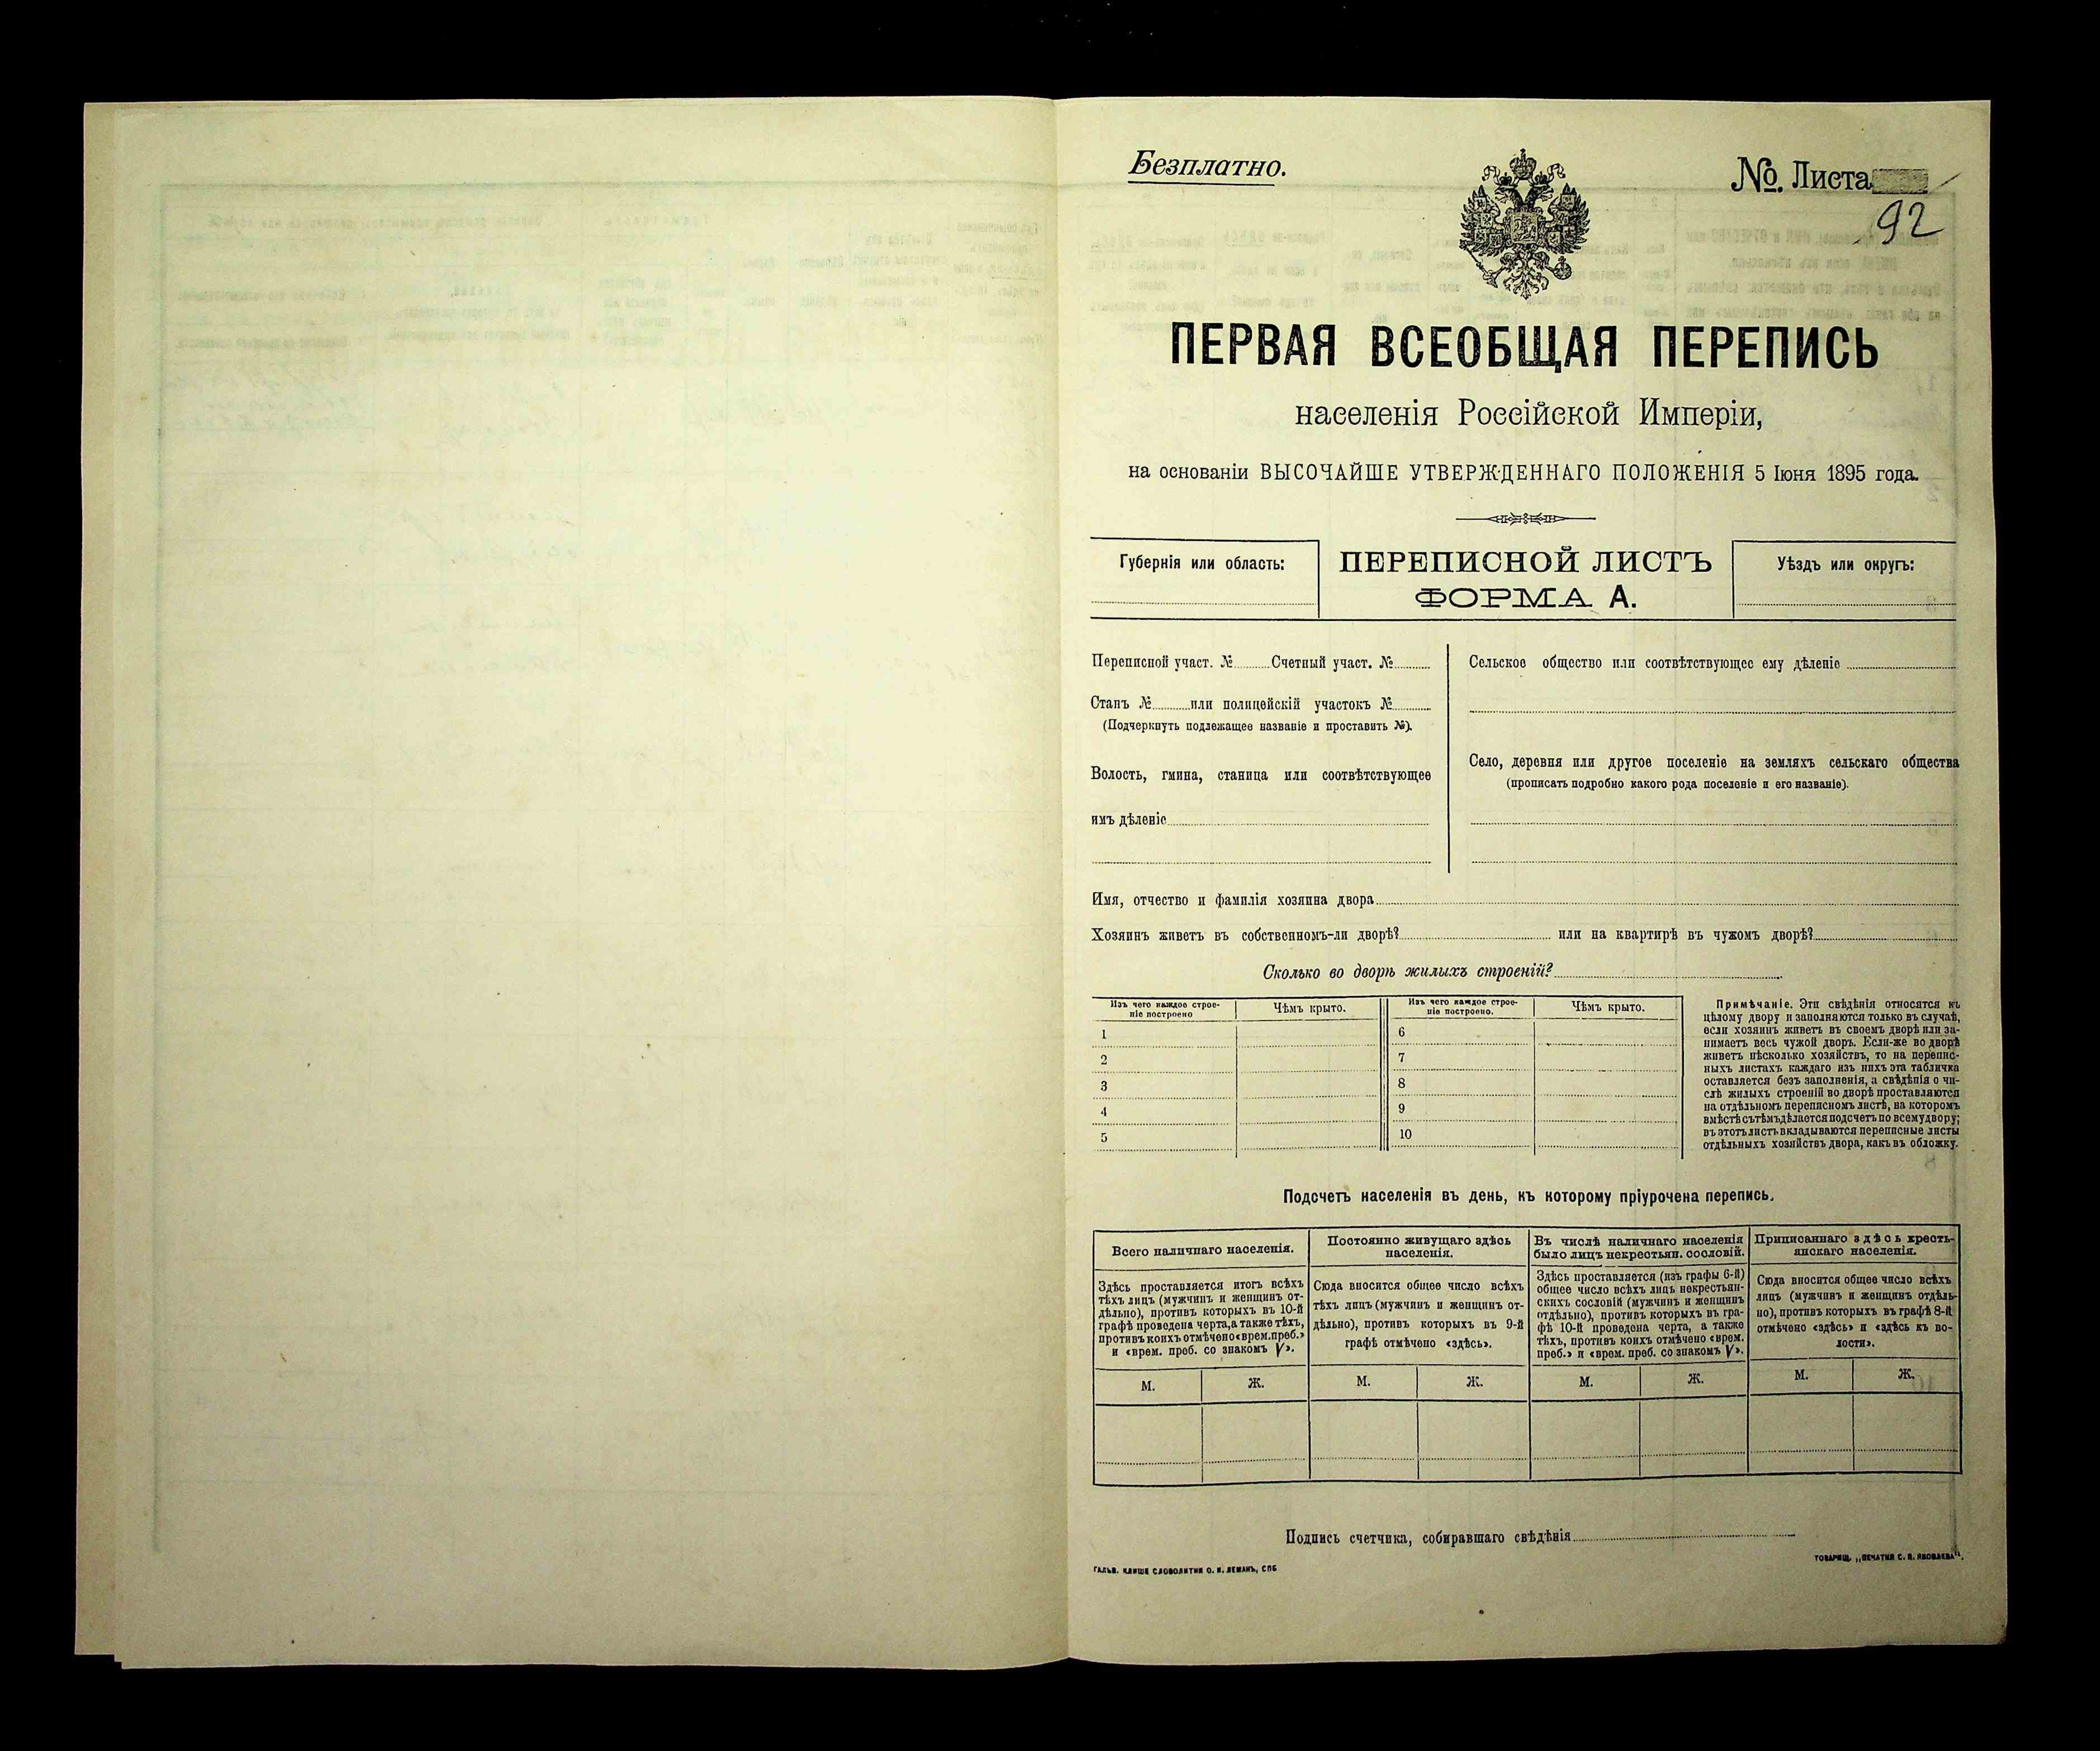 Безплатно.
№. Листа
92
ПЕРВАЯ ВСЕОБЩАЯ ПЕРЕПИСЬ
населенія Россійской Имперіи,
на основаніи ВЫСОЧАЙШЕ УТВЕРЖДЕННАГО ПОЛОЖЕНІЯ 5 Іюня 1895 года.
Губернія или область:
ПЕРЕПИСНОЙ ЛИСТЪ
ФОРМА А.
Уѣздъ или округъ:
Переписной участ. № Счетный участ. №
Станъ № или полицейскій участокъ №
(Подчеркнуть подлежащее названіе и проставить №).
Волость, гмина, станица или соотвѣтствующее
имъ дѣленіе
Сельское общество или соотвѣтствующее ему дѣленіе
Село, деревня или другое поселеніе на земляхъ сельскаго общества
(прописать подробно какого рода поселеніе и его названіе).
Имя, отчество и фамилія хозяина двора
Хозяинъ живетъ въ собственномъ-ли дворѣ? или на квартирѣ въ чужомъ дворѣ?
Сколько во дворѣ жилыхъ строеній?
Изъ чего каждое строе-
ніе построено
Чѣмъ крыто.
1
2
3
4
5
Изъ чего каждое строе-
ніе построено.
Чѣмъ крыто.
6
7
8
9
10
Примѣчаніе. Эти свѣдѣнія относятся къ
цѣлому двору и заполняются только въ случаѣ,
если хозяинъ живетъ въ своемъ дворѣ или за-
нимаетъ весь чужой дворъ. Если-же во дворѣ
живетъ нѣсколько хозяйствъ, то на перепис-
ныхъ листахъ каждаго изъ нихъ эта табличка
оставляется безъ заполненія, а свѣдѣнія о чи-
слѣ жилыхъ строеній во дворѣ проставляются
на отдѣльномъ переписномъ листѣ, на которомъ
вмѣстѣ съ тѣмъ дѣлается подсчетъ по всему двору;
въ этотъ листъ вкладываются переписные листы
отдѣльныхъ хозяйствъ двора, какъ въ обложку.
Подсчетъ населенія въ день, къ которому пріурочена перепись.
Всего наличнаго населенія.
Здѣсь проставляется итогъ всѣхъ
тѣхъ лицъ (мужчинъ и женщинъ от-
дѣльно), противъ которыхъ въ 10-й
графѣ проведена черта, а также тѣхъ,
противъ коихъ отмѣчено «врем. преб.»
и «врем. преб. со знакомъ V».
М. Ж.
Постоянно живущаго здѣсь
населенія.
Сюда вносится общее число всѣхъ
тѣхъ лицъ (мужчинъ и женщинъ от-
дѣльно), противъ которыхъ въ 9-й
графѣ отмѣчено «здѣсь».
М. Ж.
Въ числѣ наличнаго населенія
было лицъ некрестьян. сословій.
Здѣсь проставляется (изъ графы 6-й)
общее число всѣхъ лицъ некрестьян-
скихъ сословій (мужчинъ и женщинъ
отдѣльно), противъ которыхъ въ гра-
фѣ 10-й проведена черта, а также
тѣхъ, противъ коихъ отмѣчено «врем.
преб.» и «врем. преб. со знакомъ V».
М. Ж.
Приписаннаго здѣсь кресть-
янскаго населенія.
Сюда вносится общее число всѣхъ
лицъ (мужчинъ и женщинъ отдѣль-
но), противъ которыхъ въ графѣ 8-й
отмѣчено «здѣсь» и «здѣсь къ во-
лости».
М. Ж.
Подпись счетчика, собиравшаго свѣдѣнія
ГАЛЬВ. КЛИШЕ СЛОВОЛИТНИ О. И. ЛЕМАНЪ, СПБ
ТОВАРИЩ. „ПЕЧАТНЯ С. П. ЯКОВЛЕВА“.